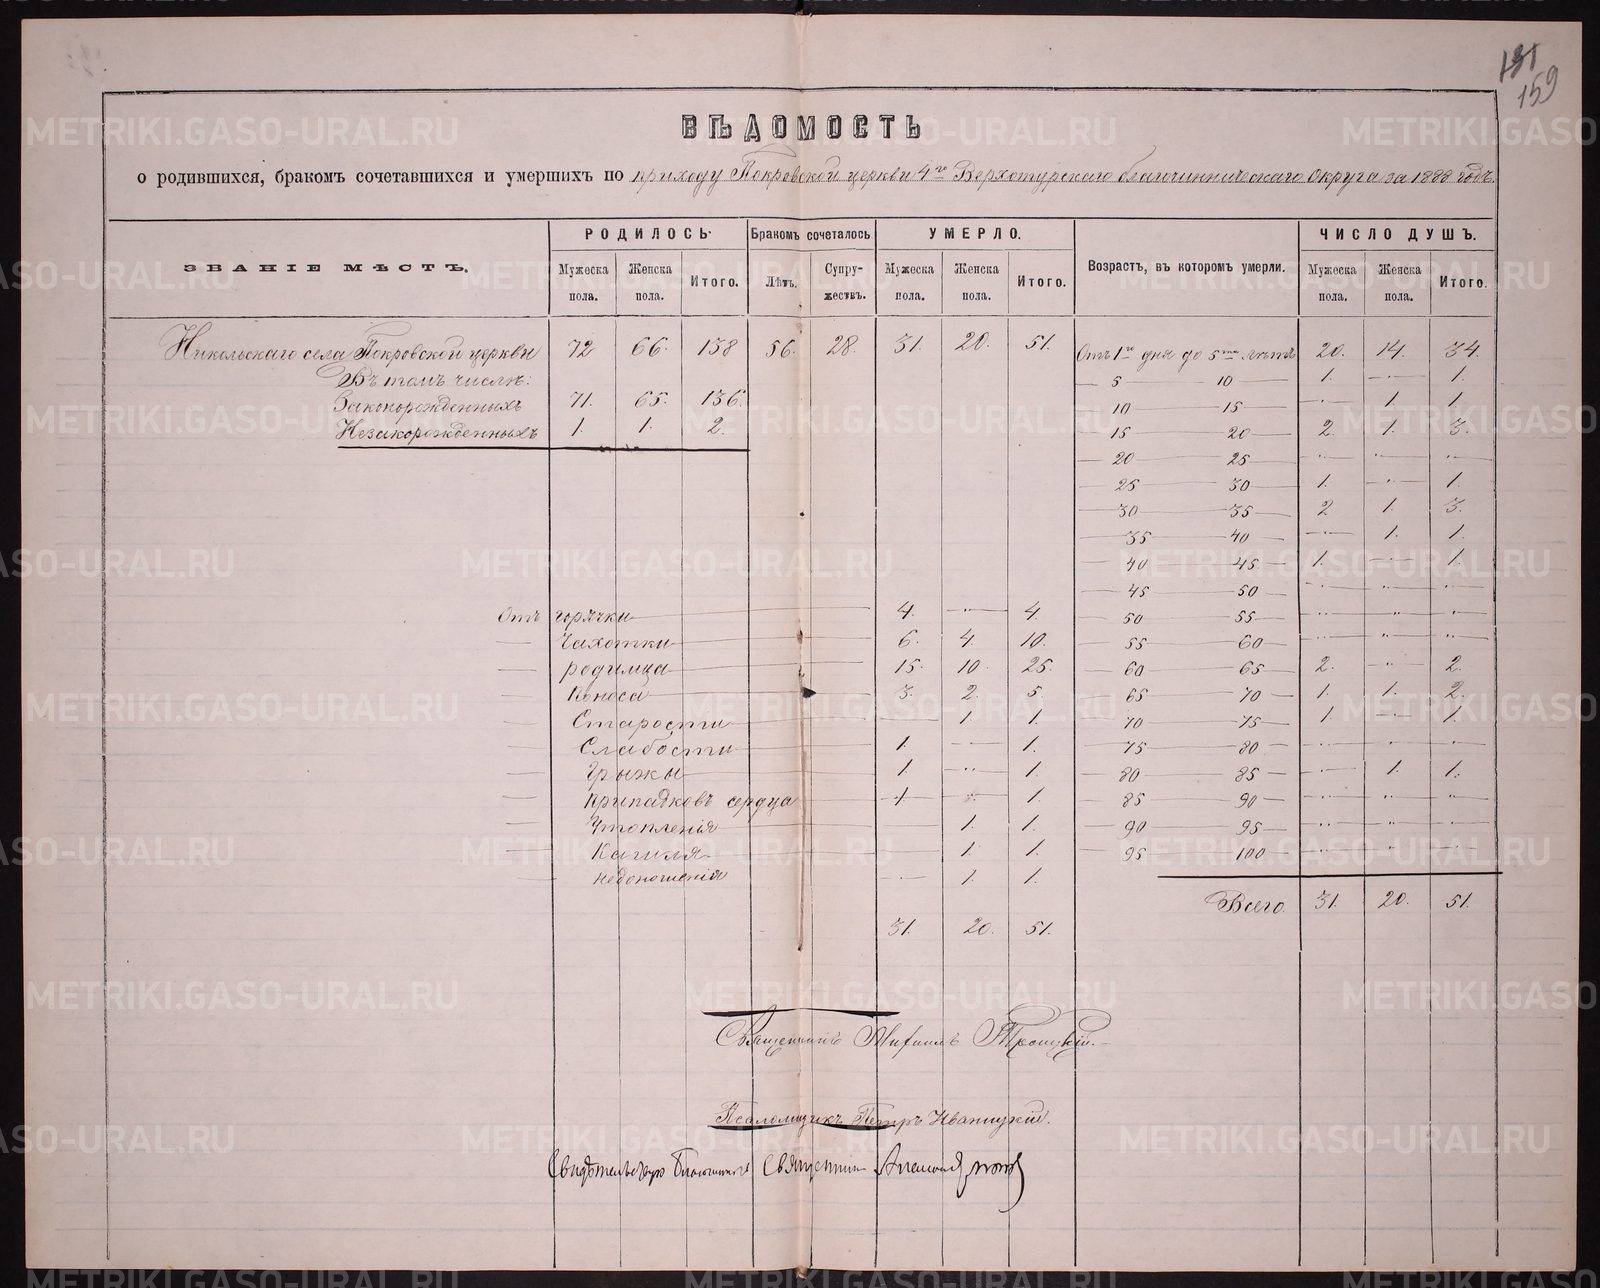 131
159
ВѢДОМОСТЬ
о родившихся, бракомъ сочетавшихся и умершихъ по приходу Покровской церкви 4го Верхотурскаго благочинническаго Округа за 1888 годъ.
ЗВАНІЕ МѢСТЪ. РОДИЛОСЬ. Бракомъ сочеталось УМЕРЛО. Возрастъ, въ которомъ умерли. ЧИСЛО ДУШЪ.
Мужеска пола. Женска пола. Итого. Лѣтъ. Супружествъ. Мужеска пола. Женска пола. Итого. Мужеска пола. Женска пола. Итого.
Никольскаго села Покровской церкви 72 66. 138 56. 28. 31. 20. 51. Отъ 1го дня до 5ти лѣтъ 20. 14. 34.
Въ томъ числѣ: 5 10 1. " 1.
Законорожденныхъ 71. 65. 136. 10 15 " 1. 1.
Незакорожденныхъ 1. 1. 2. 15 20 2. 1. 3.
20 25 " " "
25 30 1. " 1.
30 35 2 1. 3.
35 40 " 1. 1.
40 45 1. " 1.
45 50 " " "
Отъ горячки 4. " 4. 50 55 " " "
Чахотки 6. 4. 10. 55 60 " " "
родимца 15. 10. 25. 60 65 2. " 2.
Поноса 3. 2. 5. 65 70 1. 1. 2.
Старости 1. 1. 70 75 1. 1.
Слабости 1. 1. 75 80 " " "
Грыжи 1. " 1. 80 85 " 1. 1.
припадковъ сердца 1 1. 85 90 " " "
Утопленія 1. 1. 90 95 " " "
Кашля 1. 1. 95 100 " " "
недоношенія " 1. 1.
Всего 31. 20. 51.
31. 20. 51.
Священникъ Михаилъ Троицкій.
Псаломщикъ Петръ Иваницкій.
Свидѣтельствую Благочинный Священникъ
METRIKI.GASO-URAL.RU